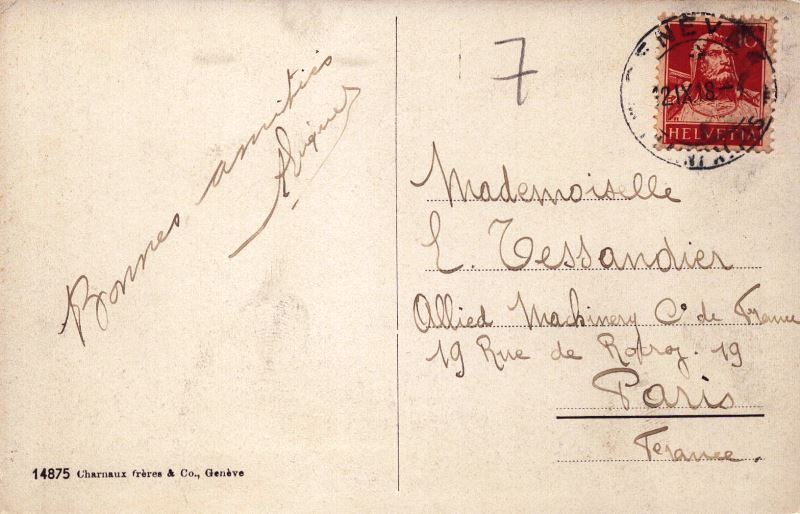 Bonnes amitiés
7
GENÈVE
12 IX 18
10
HELVETIA
Mademoiselle
L. Tessandier
Allied Machinery Co de France
19 Rue de Rocroy. 19
Paris
France.
14875 Charnaux frères & Co., Genève